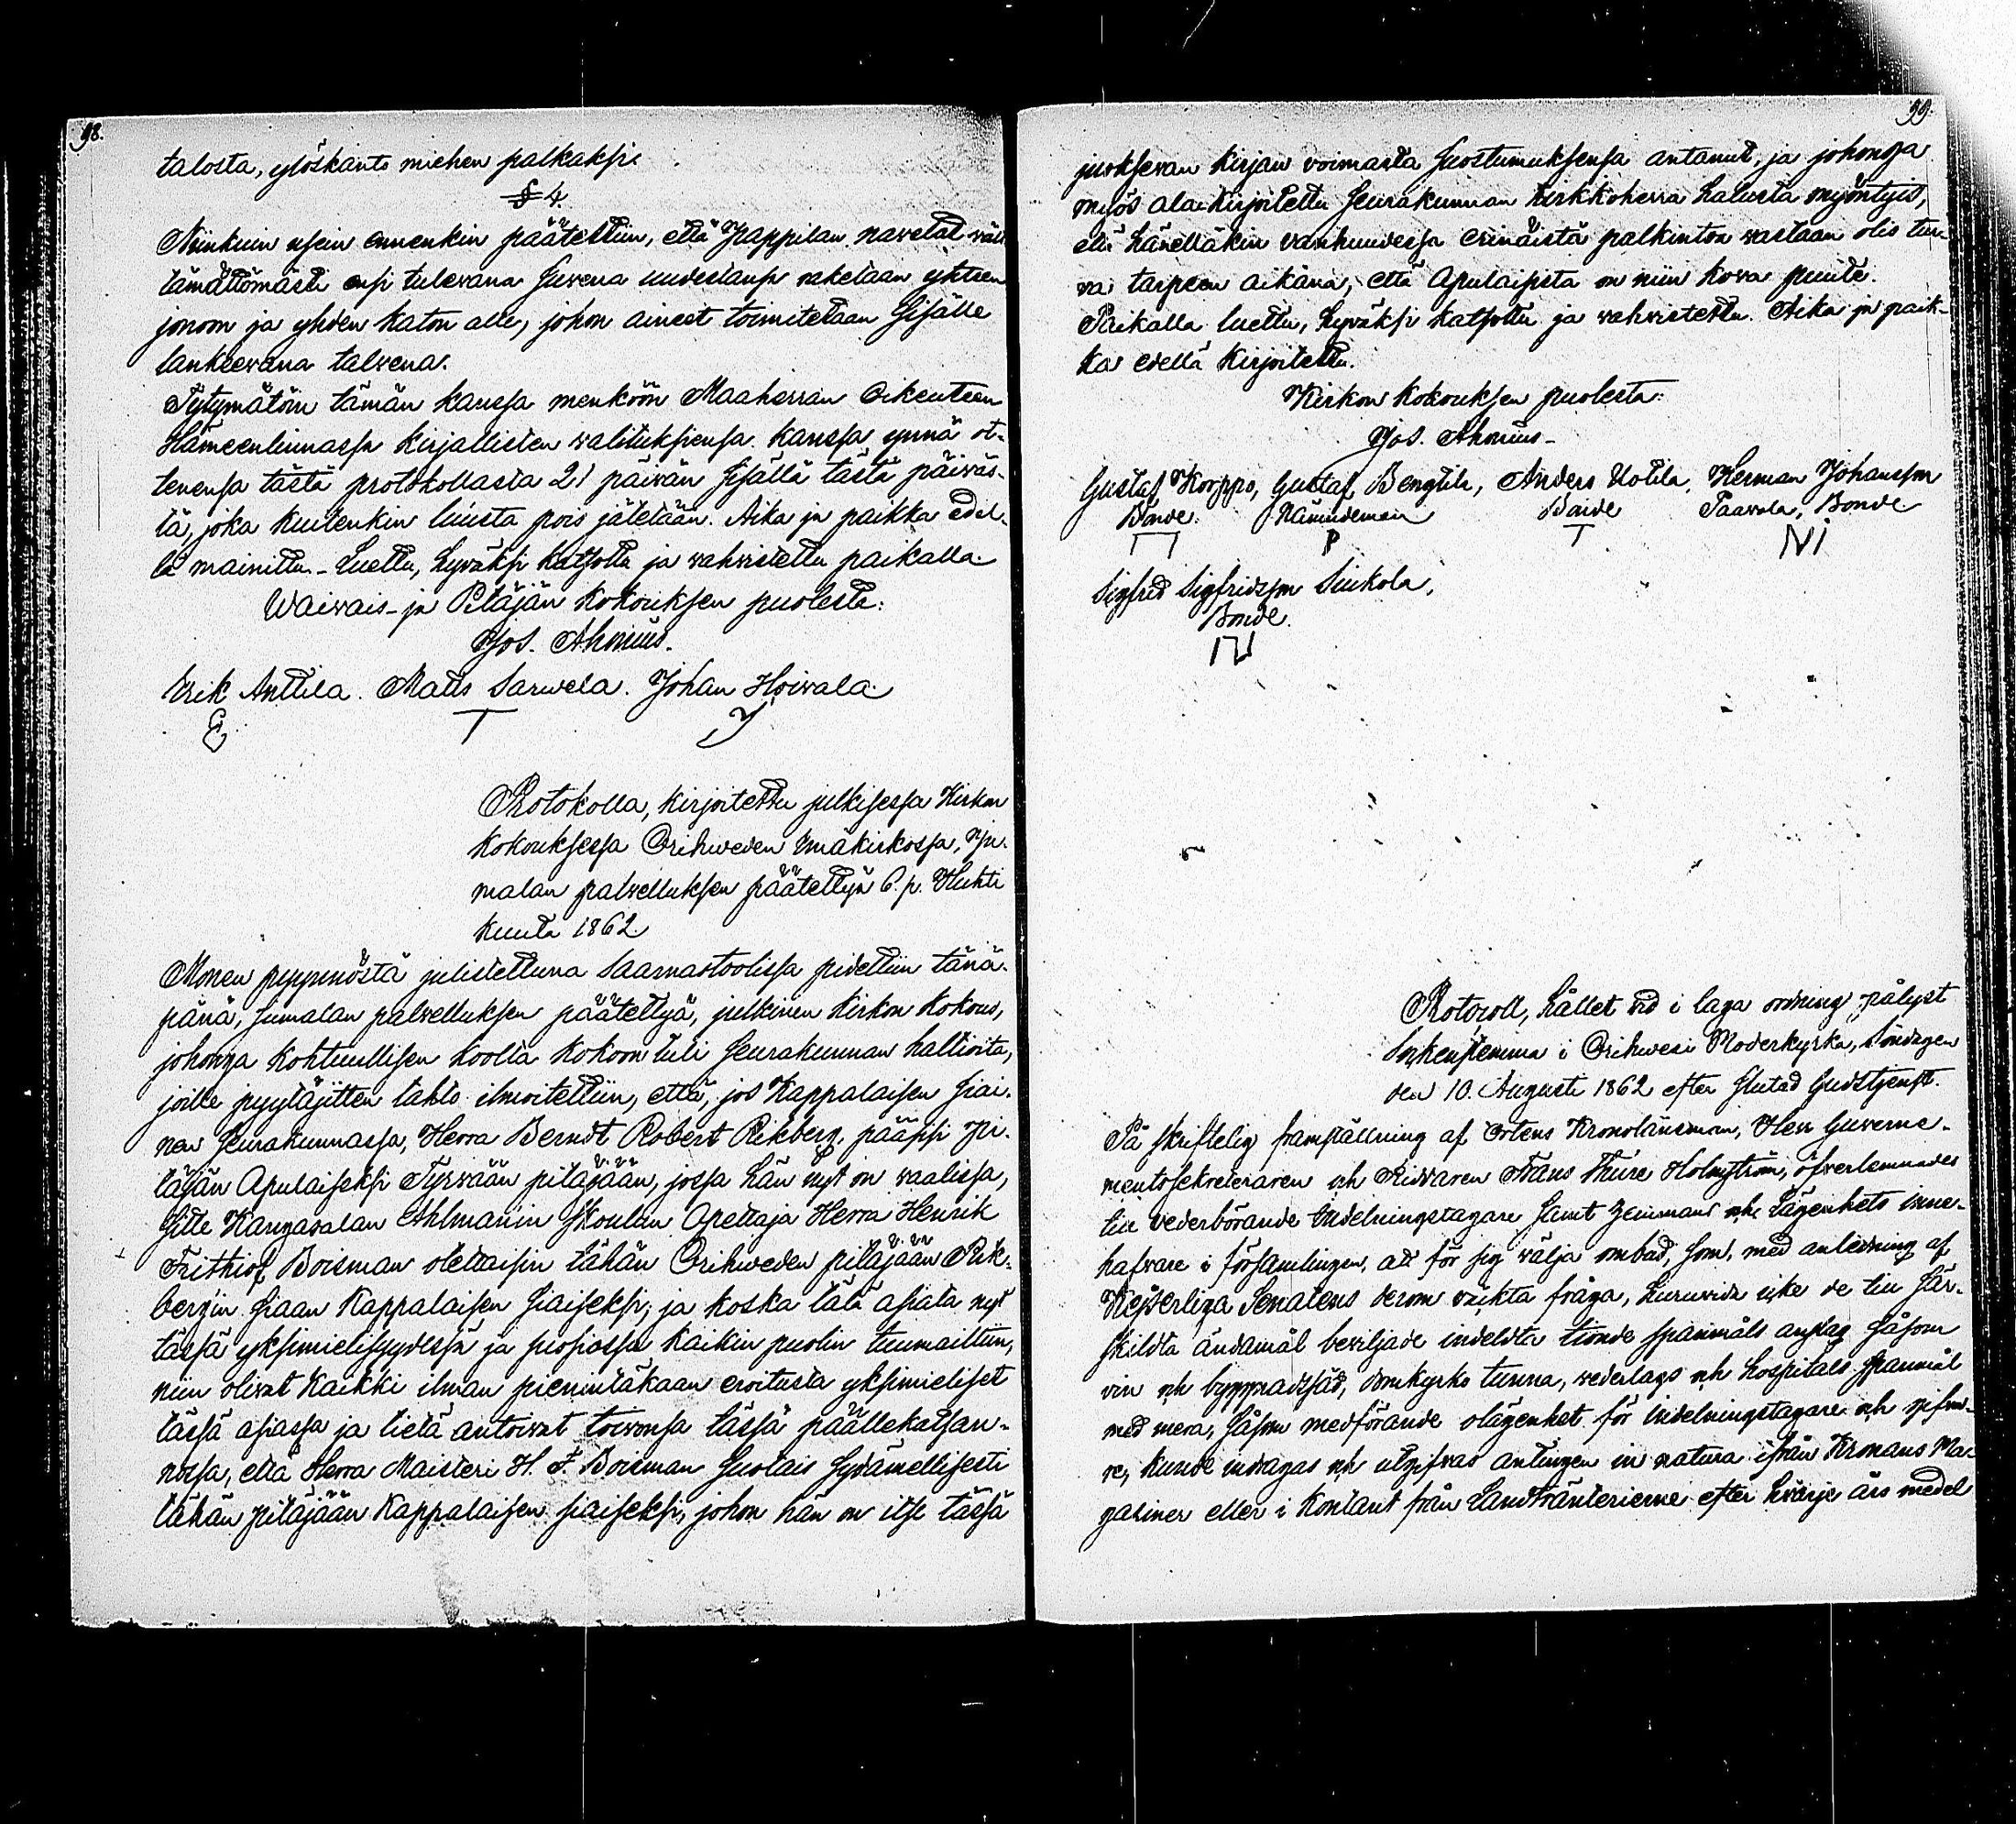 98.
talosta, ylöskanto miehen palkaksi.
§ 4.
Niinkuin usein ennenkin päätettiin, että Pappilan navetat vält-
tämättömästi ensi tulevana Suvena uudestansa raketaan yhteen
jonoon ja yhden katon alle, johon aineet toimitetaan Sisälle
lankeevana talvena.
Tytymätöin tämän kanssa menköön Maaherran Oikeuteen
Hämeenlinnassa kirjallisten valituksiensa kanssa ynnä ot-
tenensa tästä protokollasta 21 päivän Sisällä tästä päiväs-
tä, joka kuitenkin luusta pois jätetään. Aika ja paikka edel-
lä mainittu. Luettu, hyväksi katsottu ja vahvistettu paikalla.
Waivais- ja Pitäjän kokouksen puolesta:
Jos. Ahonius.
Erik Anttila. Matts Sarvela. Johan Hoivala.
E T J
Protokolla, kirjoitettu julkisessa Kirkon
kokouksessa Orihweden Emäkirkossa, Ju-
malan palvelluksen päätettyä 6. p. Huhti
kuuta 1862.
Monen pyynnöstä julistettuna Saarnastoolissa pidettiin tänä-
pänä, Jumalan palvelluksen päätettyä, julkinen Kirkon kokous,
johonga kohtuullisen koolta kokoon tuli Seurakunnan haltioita,
joille pyytäjitten tahto ilmoitettiin, että, jos Kappalaisen Siai-
nen Seurakunnassa, Herra Berndt Robert Rikberg, pääsisi Pi-
täjän Apulaiseksi Tyrvään pitäjään, jossa hän nyt on vaalissa,
Sitte Kangasalan Ahlman'in Skoulun Opettaja Herra Henrik
Frithiof Boisman otettaisiin tähän Orihweden pitäjään Rik-
berg'in Siaan Kappalaisen Siaiseksi; ja koska tätä asiata nyt
tässä yksimielisyydessä ja suosiossa kaikin puolin tuumaittiin,
niin olivat kaikki ilman pienintäkään eroitusta yksimieliset
tässä asiassa ja tietä antoivat toivonsa tässä päällekatsan-
nossa, että Herra Maisteri H. F. Boisman Suotais Sydämellisesti
tähän pitäjään Kappalaisen Siaiseksi, johon hän on itse tässä
99.
juoksevan kirjan voimasta Suostumuksensa antanut, ja johonga
myös alaikirjoitettu Seurakunnan kirkkoherra halusta myöntyis,
että hänelläkin vanhuudessa erinäistä palkintoa vastaan olis tur-
va tarpeen aikana, että Apulaisista on niin kova puute.
Paikalla luettu, hyväksi katsottu ja vahvistettu. Aika ja paik-
ka edellä kirjoitettu.
Kirkon kokouksen puolesta:
Jos. Ahonius.
Gustaf Korppo, Gustaf Bengtila, Anders Uotila, Herman Johansson
Bonde. Nämndeman Bonde Paavola, Bonde.
P T
Sigfrid Sigfridsson Sinkola,
Bonde.
Protocoll, hållet vid i laga ordning pålyst
Sockenstemma i Orihwesi Moderkyrka, Söndagen
den 10. Augusti 1862 efter Slutad Gudstjenst.
På skriftelig framställning af Ortens Kronolänsman, Herr Guverne-
mentssekreteraren och Riddaren Frans Thure Holmström, öfverlemnades
till vederbörande Indelningstagare samt Hemmans och Lägenhets inne-
hafvare i församlingen, att för sig välja ombud, som, med anledning af
Kejserliga Senatens derom väckta fråga, huruvida icke de till sär-
skildta ändamål beviljade indeldta tionde spannmåls anslag såsom
vin och byggnadssäd, domkyrko tunna, vederlags och hospitals spannmål
med mera, såsom medförande olägenhet för Indelningstagare och gifva-
re, kunde indragas och utgifvas antingen in natura ifrån Kronans Ma-
gasiner eller i kontant från Landtränterierne efter hvarje års medel